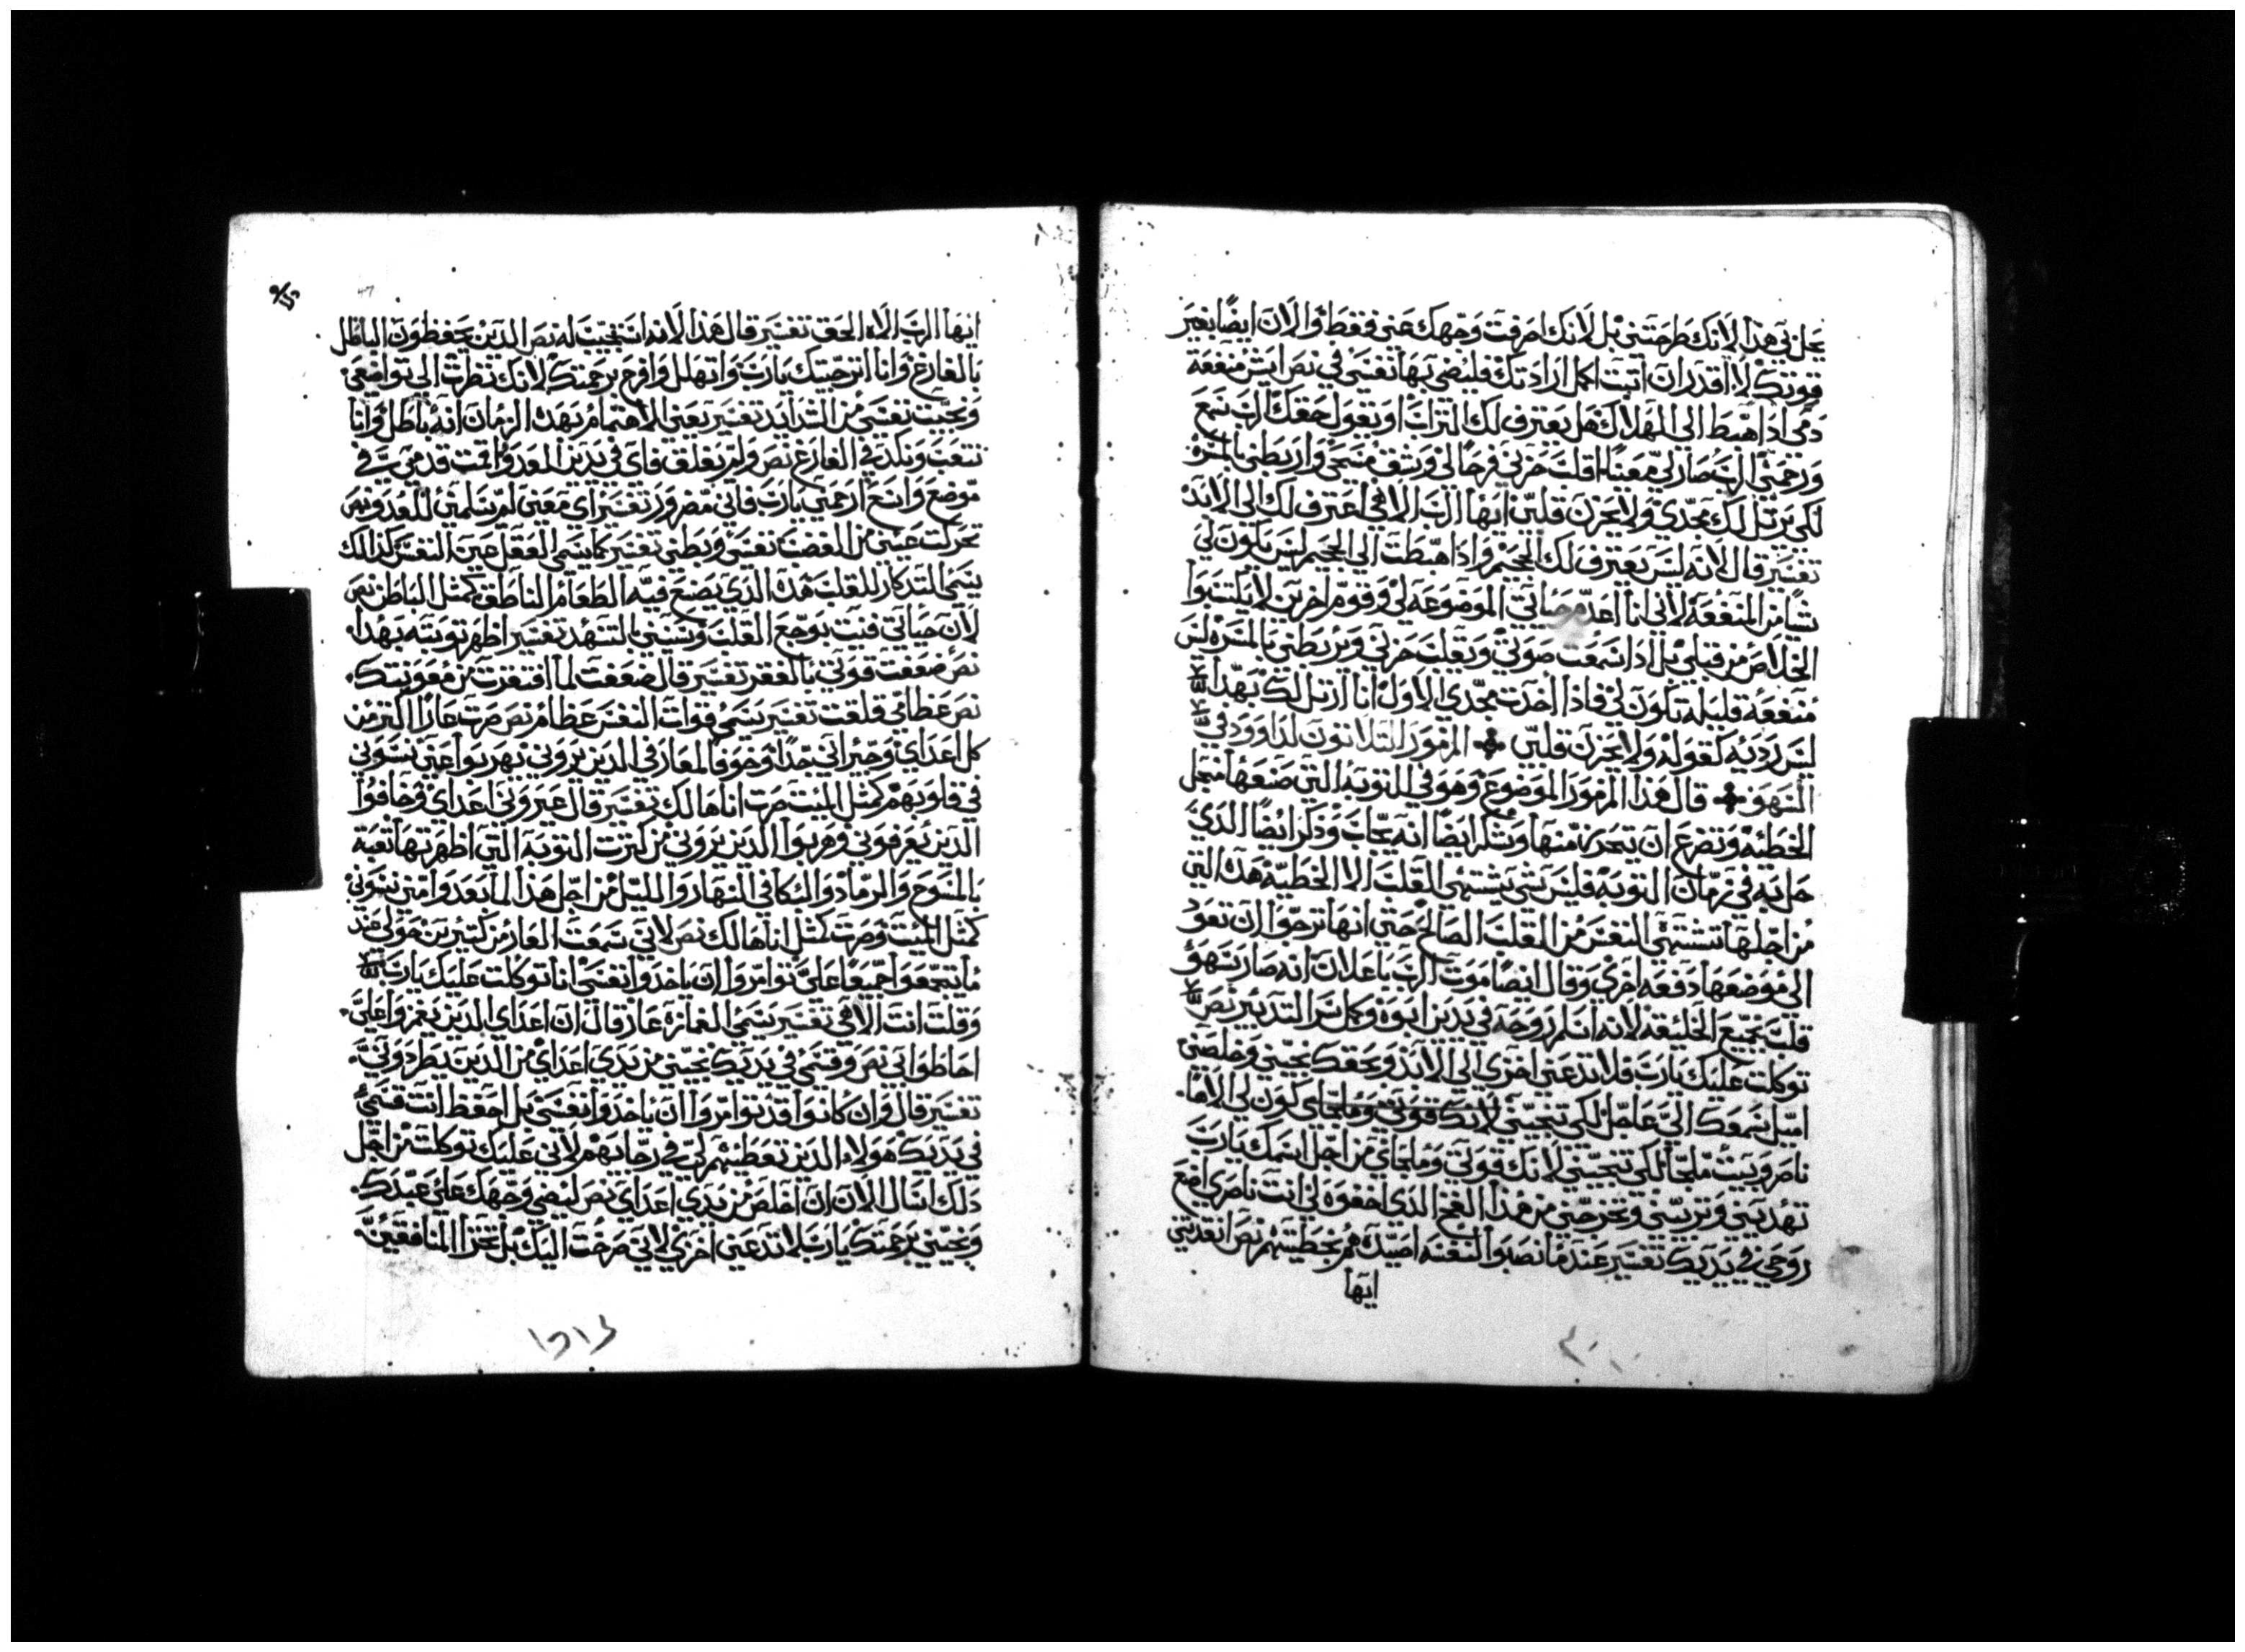 حل بي هذا لانك طرحتني بل لانك صرفت وجهك عني فقط والان ايضا بغير
قوتك لا اقدر ان اتبت اكمل ارادتك فليضي بها نفسي في نص ايت منفعة
دمي اذا اهبط الى الهلاك هل يعترف لك التراب او يقول حقك الرب سمع
ورحمني الرب صار لي معينا اقلب حزني فرحا لي وشق مسحي واربطني بالمسره
لكي يرتل لك مجدي ولا يحزن قلبي ايها الرب الاهي اعترف لك الى الابد
تفسير قال لانه ليس يعترف لك الجحيم واذا هبطت الى الجحيم ليس يكون لي
شيا من المنفعه لاني انا اعدم حياتي الموضوعه لي وقوم اخرين لا يلتبوا
الخلاص من قبلي بل اذا سمعت صوتي وتقلب حزني وتربطني بالمسره ليس
منفعه قليله تكون لي فاذا اخدت مجدي الاول انا ارتل لك بهدا
ليس رديه كقوله ولا يحزن قلبي المزمور التلاتون لداوود في
السهو قال هذا المزمور الموضوع وهو في التوبه التي صنعها من اجل
الخطيه وتضرع ان يتحرك منها وشكر ايضا انه يجاب وذكر ايضا الذي
حل به في زمان التوبه فليس شي يشتهي القلب الا الخطيه هذه التي
من اجلها تشتهي النفس من القلب الصالح حتى انها ترجوا ان تعود
الى موضعها دفعه اخرى وقال ايضا موت الرب باعلان انه صار سهو
قلب جميع الخليقه لانه اسلم روحه في يدين ابوه وكمل سر التدبير نص
توكلت عليك يارب فلا تدعني اخزي الى الابد وبحقك نجيني وخلصني
اميل سمعك الي عاجل لكي تنجيني لانك قوتي وملجاي كون لي الاها
ناصر وبيت ملجا لكي تنجيني لانك قوتي وملجاي من اجل اسمك يارب
تهديني وتربيني وتخرجني من هذا الفخ الذي اخفوه لي انت ناصري اضع
روحي في يديك تفسير عند ما نصبوا لنفسه اصيدهم بخطيتهم نص انقدتني
ايها
ايها الرب الاه الحق تفسير قال هذا لانه استجيب له نص الدين يحفظون الباطل
بالفارغ وانا اترجيتك يارب واتهلل وافرح برحمتك لانك نظرت الى تواضعي
ونجيت نفسي من الشدايد تفسير يعني الاهتمام بهده الزمان انه باطل وانا
نتعب ونكد في الفارغ نص ولم تغلق فاي في يدين العدو اقمت قدمي في
موضع واسع ارحمني يارب فاني مضرور تفسير اي معني لم تسلمني للعدو نص
تحركت عيني من الغضب نفسي وبطني تفسير كما يسمي العقل عين النفس كذالك
يسمي التدكار للقلب هذه الذي يصنع فيه الطعام الناطق كمثل الباطن نص
لان حياتي فنيت بوجع القلب وسنيني بالتنهد تفسير اظهر توبته بهدا
نص ضعفت قوتي بالفقر تفسير قال ضعفت لما افتقرت من معونتك
نص عظامي قلقت تفسير يسمي قوات النفس عظام نص صرت عارا اكتر من
كل اعداي وجيراني جدا وخوفا لمعارفي الدين يروني هربوا عني نسوني
في قلوبهم كمثل الميت صرت اناهالك تفسير قال عيروني اعداي وخافوا
الدين يعرفوني وهربوا الدين يروني من كترت التوبه التي اظهرتها تعبه
بالمسوح والرماد والبكا في النهار والليل من اجل هذا ابعدوا مني نسوني
كمثل الميت وصرت كمثل اناهالك نص لاني سمعت العار من كتيرين حولي عند
ما تجمعوا جميعا علي توامروا ان ياخدوا نفسي انا توكلت عليك يارب
وقلت انت الاهي تفسير يسمي الغازه عار قال ان اعداي الدين يغمزوا علي
احاطوا بي نص وقسمي في يديك نجيني من يدي اعداي من الدين يطردوني
تفسير قال وان كانوا قد توامروا ان ياخدوا نفسي بل احفظ انت قسمي
في يديك هولاء الدين تعطيهم لي في رجايهم لاني عليك توكلت من اجل
دلك اسال الان ان اخلص من يدي اعداي نص ليضي وجهك على عبدك
ونجيني برحمتك يارب لا تدعني اخزي لاني صرخت اليك بل تخزا المنافقين